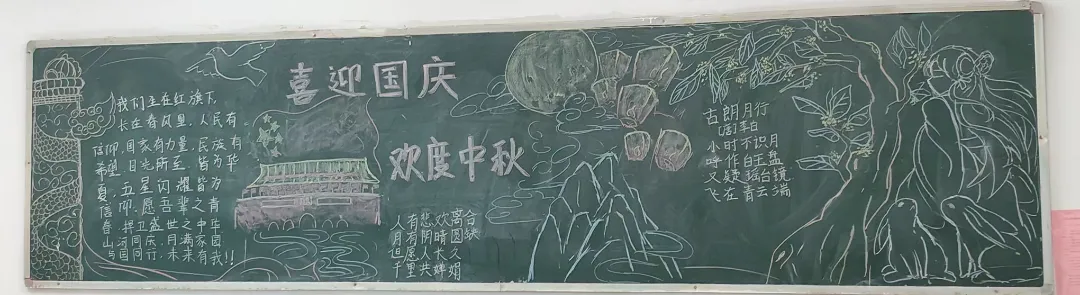 喜迎国庆
欢度中秋
我们生在红旗下,
长在春风里,人民有
信仰,国家有力量,民族有
希望,目光所至,皆为华
夏,五星闪耀皆为
信仰,愿吾辈之青
春,捍卫盛世之中华
山河同庆,月满家团
与国同行,未来有我!!
人有悲欢离合
月有阴晴圆缺
但愿人长久
千里共婵娟
古朗月行
[唐]李白
小时不识月
呼作白玉盘
又疑瑶台镜
飞在青云端